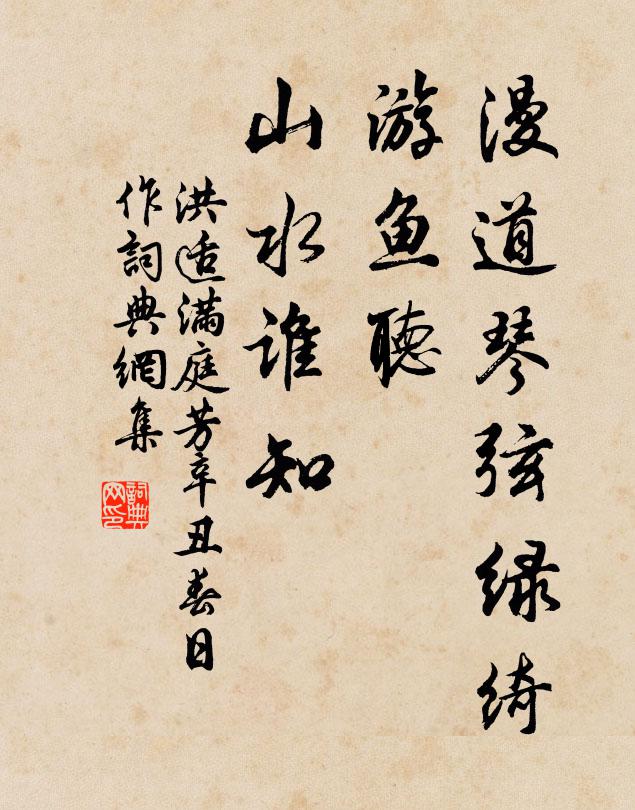 漫道琴弦绿绮
游鱼聽
山水谁知
洪适满庭芳辛丑春日
作詞典網集
詞典
网印